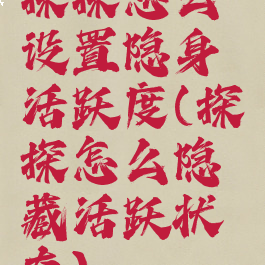 探探怎么
设置隐身
活跃度(探
探怎么隐
藏活跃状
态)